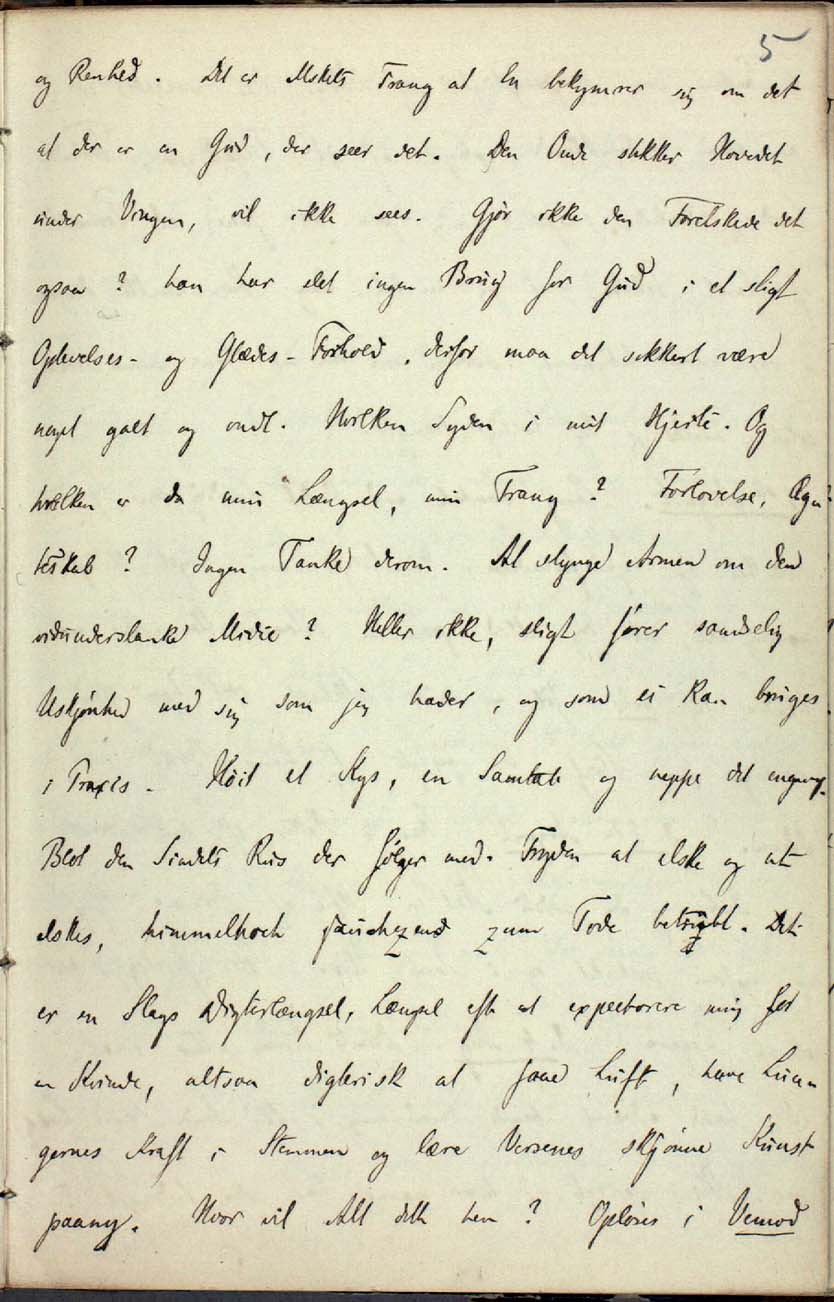 5
og Renhed. Det er Elskets Trang at En bekymrer sig om det
at der er en Gud, der seer det. Den Onde stikker Hovedet
under Vingen, vil ikke sees. Gjør ikke den Forelskede det
ogsaa? han har slet ingen Brug for Gud i et sligt
Oplevelses- og Glædes-Forhold, derfor maa det sikkert være
noget galt og ondt. Hvilken Syden i mit Hjerte. Og
hvilken er da min Længsel, min Trang? Forlovelse, Ægte-
teskab? Ingen Tanke derom. At slynge Armen om den
vidunderslanke Midie? Heller ikke, sligt fører sandselig
Uskjønhed med sig som jeg hader, og som ei kan bruges
i Praxis. Høit et Kys, en Samtale og neppe det engang.
Blot den Sindets Rus der følger med. Fryden at elske og at
elskes, himmelhoch jauchzend zum Tode betrübt. Det
er en Slags Digterlængsel, Længsel efter at expectorere mig for
en Kvinde, altsaa digterisk at faae Luft, have Lun-
gernes Kraft i Stemmen og lære Versenes skjønne Kunst
paany. Hvor vil Alt dette hen? Opløses i Vemod